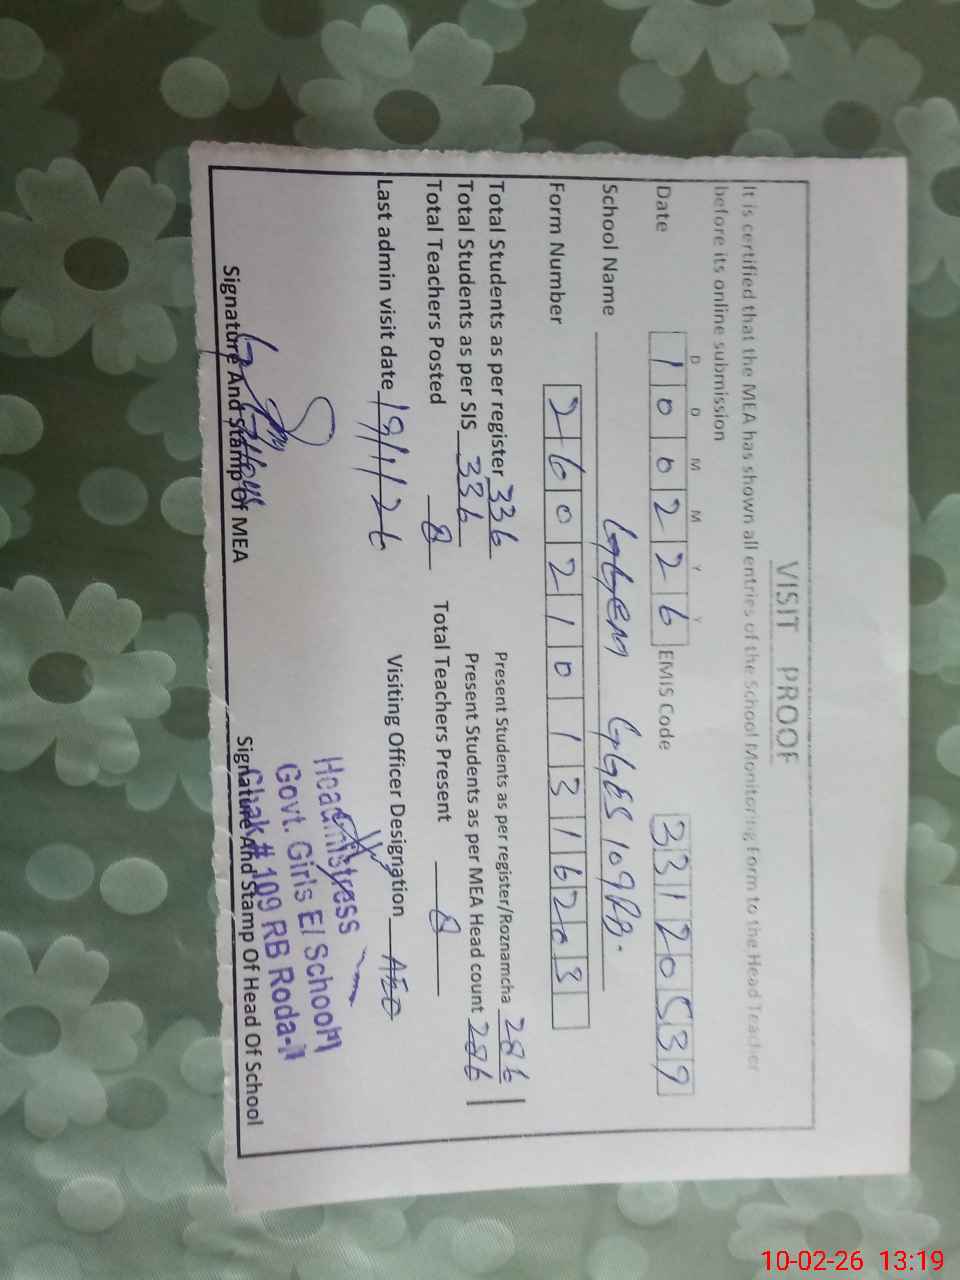 VISIT PROOF
It is certified that the MEA has shown all entries of the School Monitoring Form to the Head Teacher
before its online submission
D D M M Y Y
Date 1 0 0 2 2 6 EMIS Code 3 3 1 2 0 5 3 9
School Name GGES 109RB.
Form Number 2 6 0 2 1 0 1 3 1 6 2 0 3
Total Students as per register 336 Present Students as per register/Roznamcha 286
Total Students as per SIS 336 Present Students as per MEA Head count 286
Total Teachers Posted 8 Total Teachers Present 8
Last admin visit date 19/1/26 Visiting Officer Designation AEO
Headmistress
Govt. Girls E/ School
Chak # 109 RB Roda-
Signature And Stamp Of MEA Signature And Stamp Of Head Of School
10-02-26 13:19